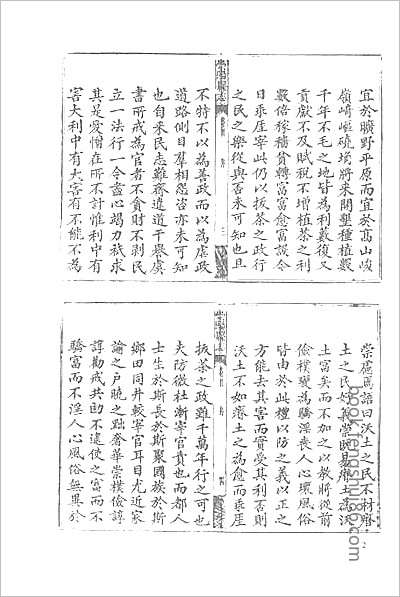 宜於曠野平原而宜於高山峻
嶺崎嶇磽埆將來開墾種植觀
千年不毛之地皆爲利藪復又
貢獻不及賦稅不增植茶之利
數倍稼穡貧轉富富愈富設令
日乖崖宰此仍以拔茶之政行
之民之樂從與否未可知也且
不特不以爲善政而以爲虐政
道路側目羣相怨咨亦未可知
也自來民志難齊違道干譽虞
書所戒爲官者不貪財不剝民
立一法行一令盡心竭力祇求
其是愛憎在所不計惟利中有
害大利中有大害有不能不爲
崇慮焉語曰沃土之民不材瘠
土之民好義崇陽易瘠土爲沃
土富矣而不加之以教將從前
儉樸變爲驕淫喪人心壞風俗
皆由於此禮以防之義以正之
方能去其害而實受其利否則
沃土不如瘠土之爲愈而乖崖
拔茶之政雖千萬年行之可也
夫防微杜漸宰官責也而都人
士生於斯長於斯聚國族於斯
鄉田同井較宰官耳目尤近家
諭之戶曉之黜奢華崇樸儉諄
諄勸戒共勖不逮使之富而不
驕富而不淫人心風俗無異於
book.fengshui86.com